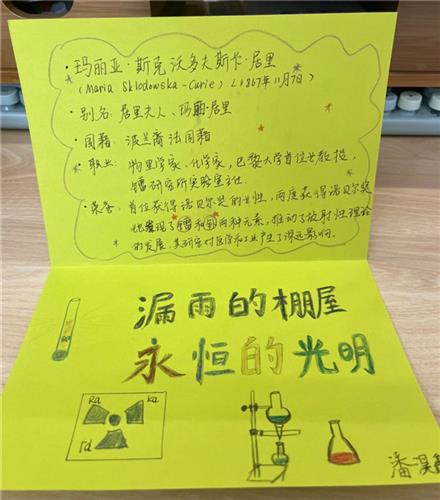 ·玛丽亚·斯克沃多夫斯卡·居里
(Maria Skłodowska-Curie) (1867年11月7日)
·别名:居里夫人、玛丽·居里
·国籍:波兰裔法国籍
·职业:物理学家、化学家,巴黎大学首位女教授,
镭研究所实验室主任.
·荣誉:首位获得诺贝尔奖的女性,两度获得诺贝尔奖
她发现了镭和钋两种元素,推动了放射性理论
的发展,其研究对医学和工业产生了深远影响.
漏雨的棚屋
永恒的光明
Ra ka
rd
潘淏